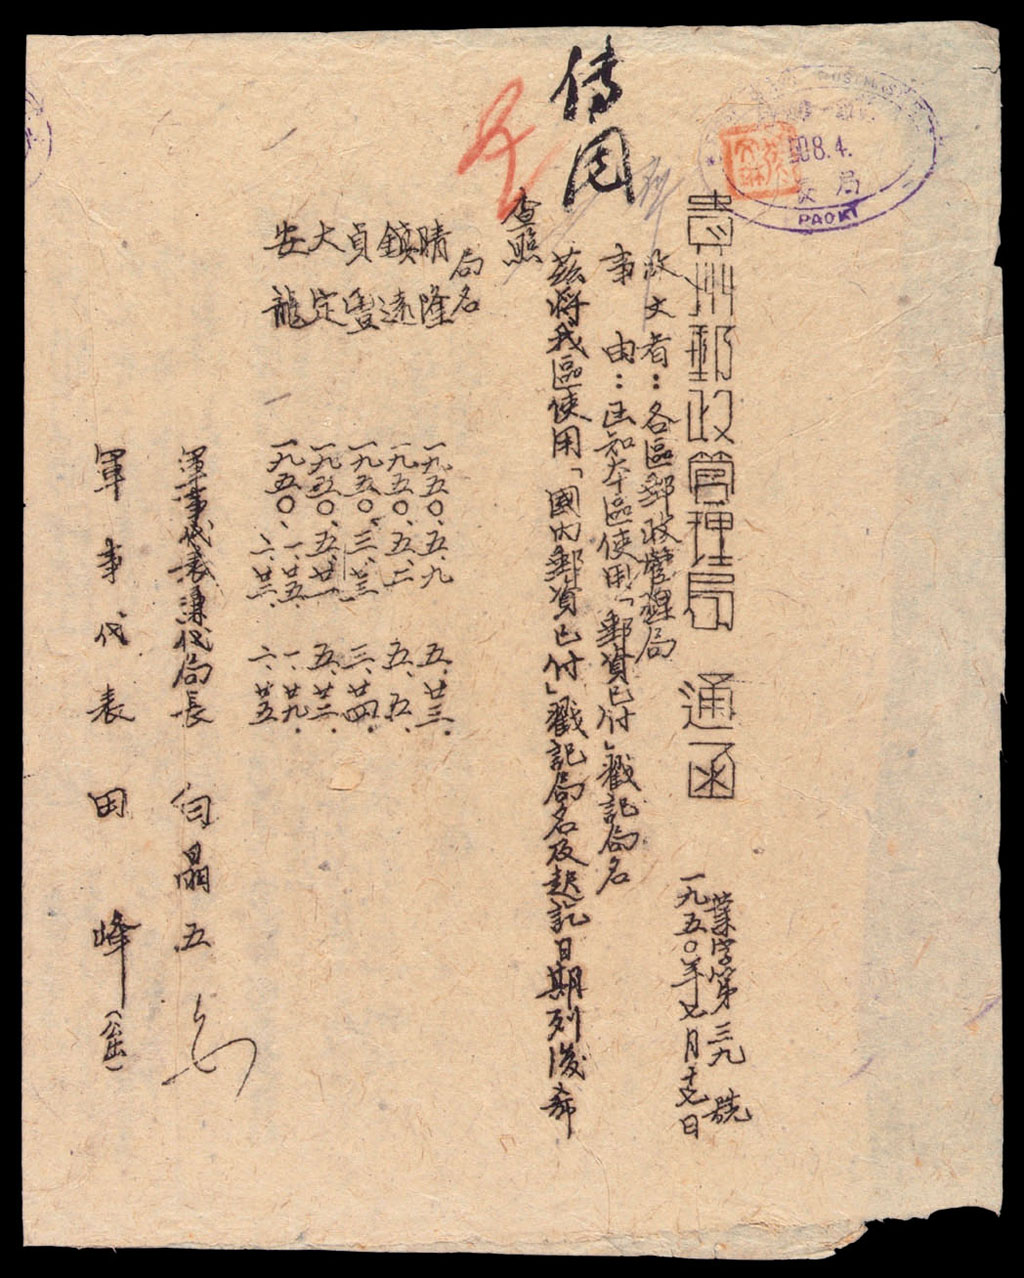 傳閱
08.4.
局
PAOKI
貴州郵政管理局 通函
業字第三九號
一九五〇年七月十七日
收文者：各區郵政管理局
事 由：函知本區使用「郵資已付」戳記局名
茲將我區使用「國內郵資已付」戳記局名及起訖日期列後希
查照
局名
晴隆 一九五〇、五、九 五、廿三、
鎮遠 一九五〇、五、二 五、五、
貞豐 一九五〇、三、廿三 三、廿四、
大定 一九五〇、五、廿一 五、廿三、
安龍 一九五〇、一、廿五、 一、廿九、
二、廿三、 二、廿五
軍事代表兼代局長 白晶五
軍事代表 田峰（公出）